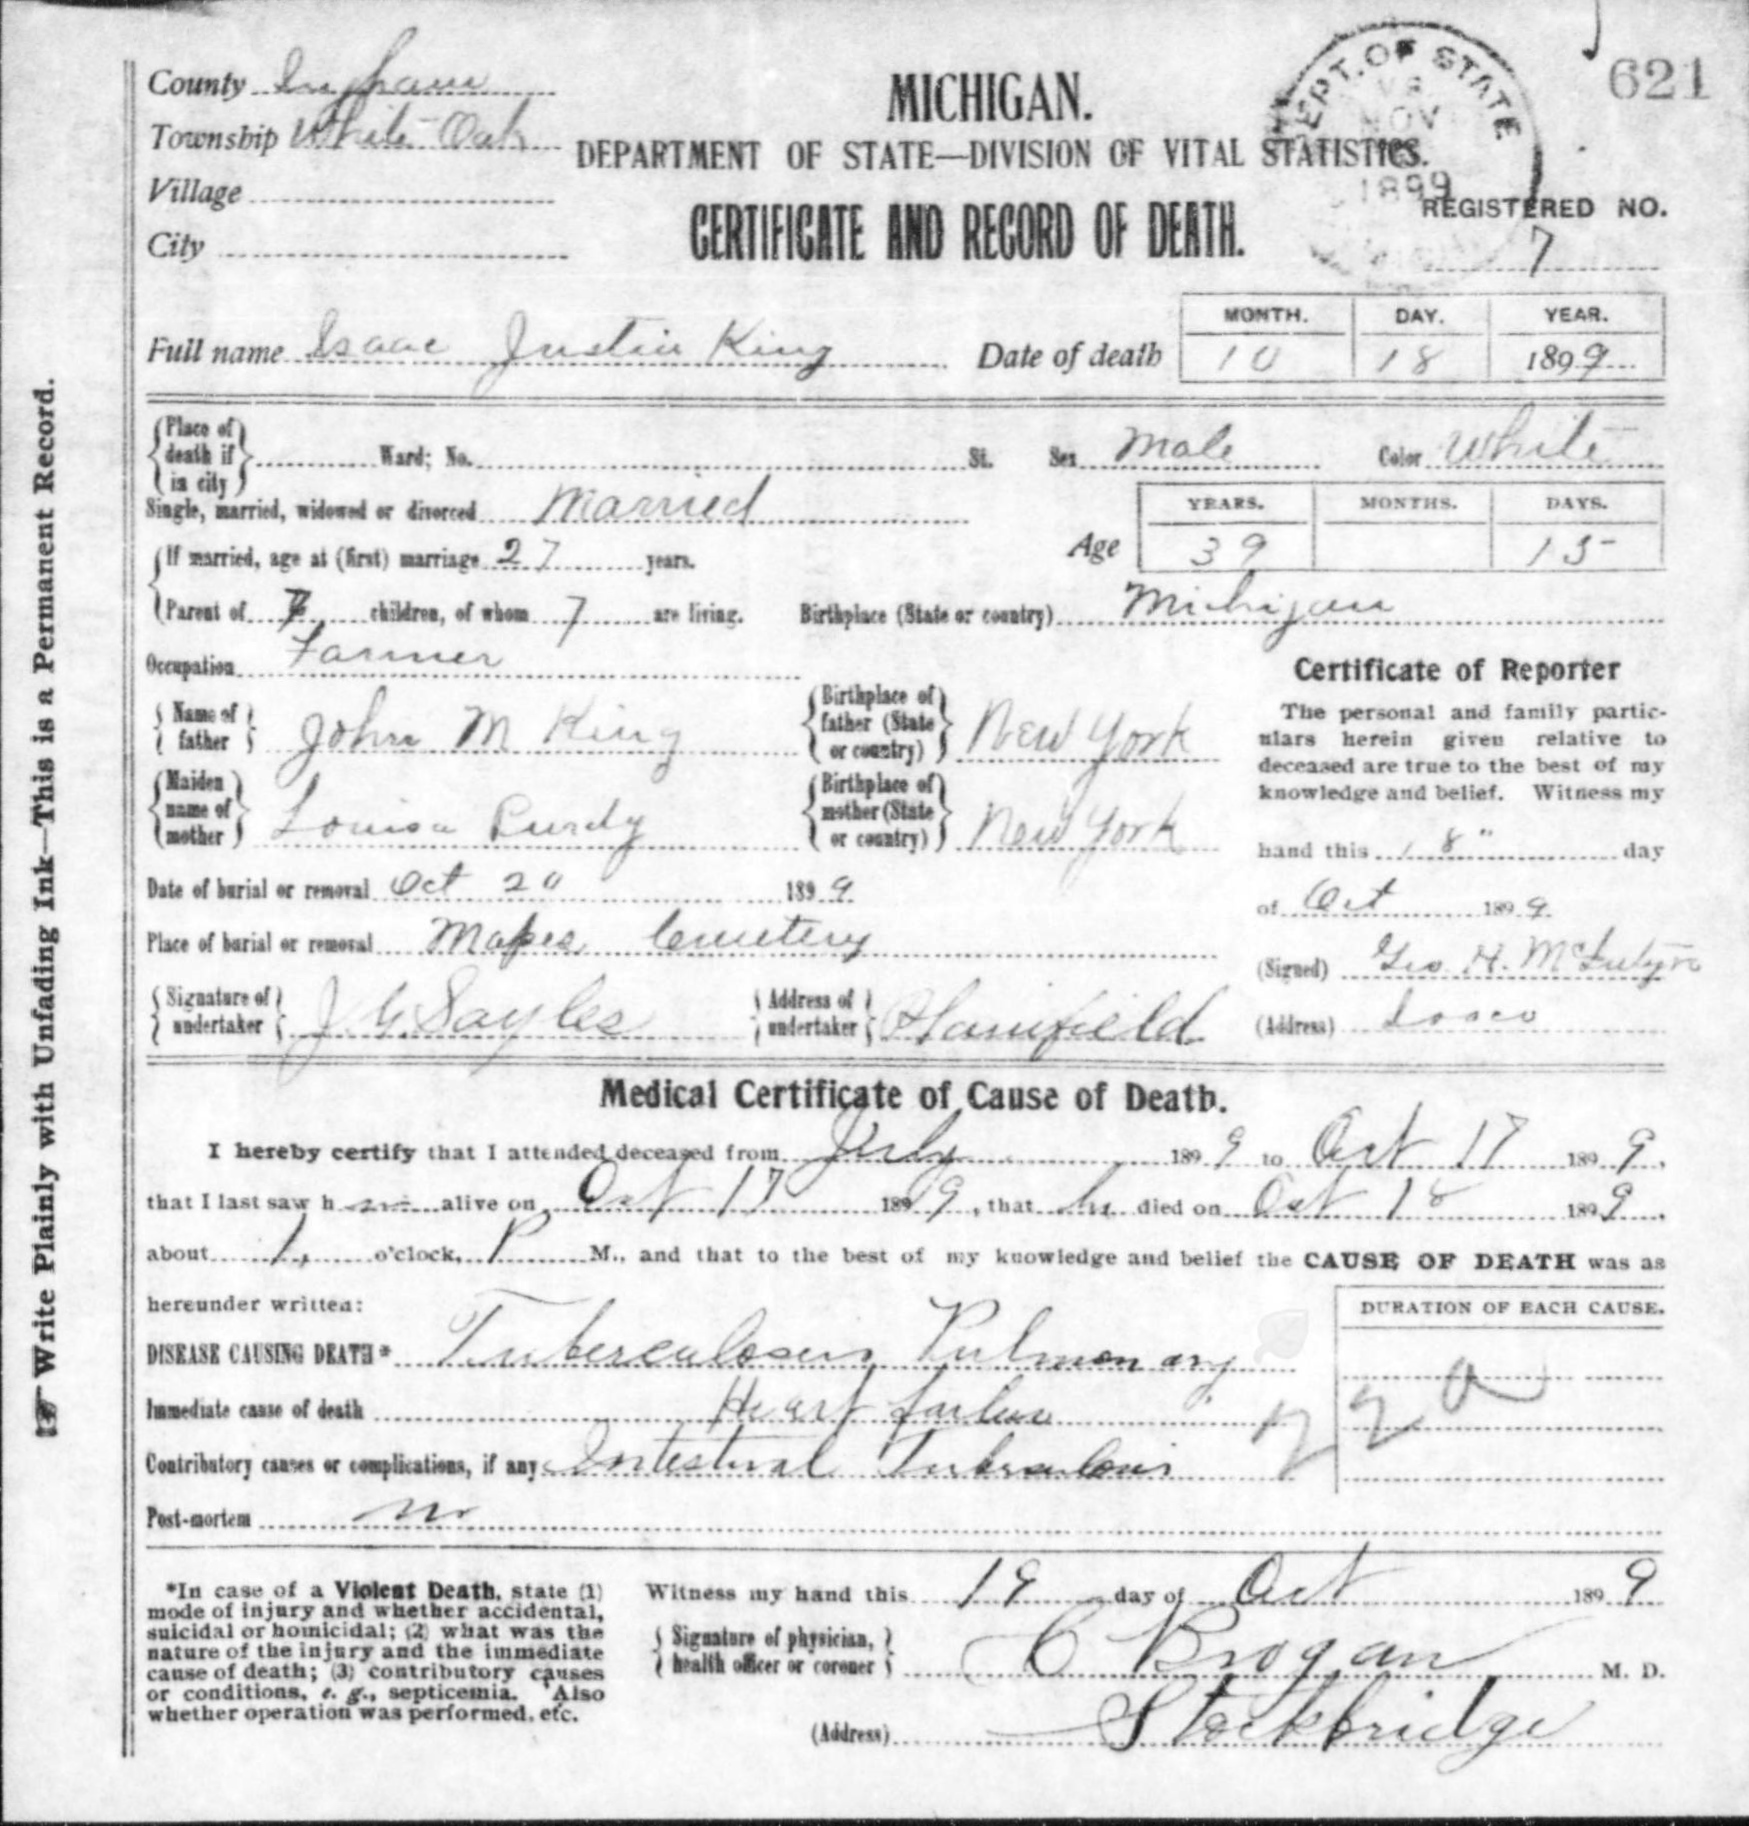 County Ingham
Township White Oak
Village
City
MICHIGAN.
DEPARTMENT OF STATE—DIVISION OF VITAL STATISTICS.
CERTIFICATE AND RECORD OF DEATH.
DEPT. OF STATE
NOV
1899
621
REGISTERED NO.
7
Full name Isaac Justin King Date of death
MONTH. DAY. YEAR.
10 18 1899
Place of death if in city Ward; No. St. Sex Male Color White
Single, married, widowed or divorced Married
YEARS. MONTHS. DAYS.
Age 39 15
If married, age at (first) marriage 27 years.
Parent of 7 children, of whom 7 are living. Birthplace (State or country) Michigan
Occupation Farmer
Name of father John M King Birthplace of father (State or country) New York
Maiden name of mother Louisa Purdy Birthplace of mother (State or country) New York
Date of burial or removal Oct 20 1899
Place of burial or removal Mapes Cemetery
Signature of undertaker J. G. Sayles Address of undertaker Plainfield
Certificate of Reporter
The personal and family partic-
ulars herein given relative to
deceased are true to the best of my
knowledge and belief. Witness my
hand this 18" day
of Oct 1899
(Signed) Geo. H. McIntyre
(Address)
Medical Certificate of Cause of Death.
I hereby certify that I attended deceased from July 1899 to Oct 17 1899,
that I last saw h im alive on Oct 17 1899, that he died on Oct 18 1899,
about 1, o'clock, P M., and that to the best of my knowledge and belief the CAUSE OF DEATH was as
hereunder written:
DURATION OF EACH CAUSE.
DISEASE CAUSING DEATH* Tuberculosis Pulmonary
Immediate cause of death Heart failure
Contributory causes or complications, if any Intestinal Tuberculosis
Post-mortem no
*In case of a Violent Death, state (1)
mode of injury and whether accidental,
suicidal or homicidal; (2) what was the
nature of the injury and the immediate
cause of death; (3) contributory causes
or conditions, e. g., septicemia. Also
whether operation was performed, etc.
Witness my hand this 19 day of Oct 1899
Signature of physician, health officer or coroner C Brogan M. D.
(Address) Stockbridge
Write Plainly with Unfading Ink—This is a Permanent Record.